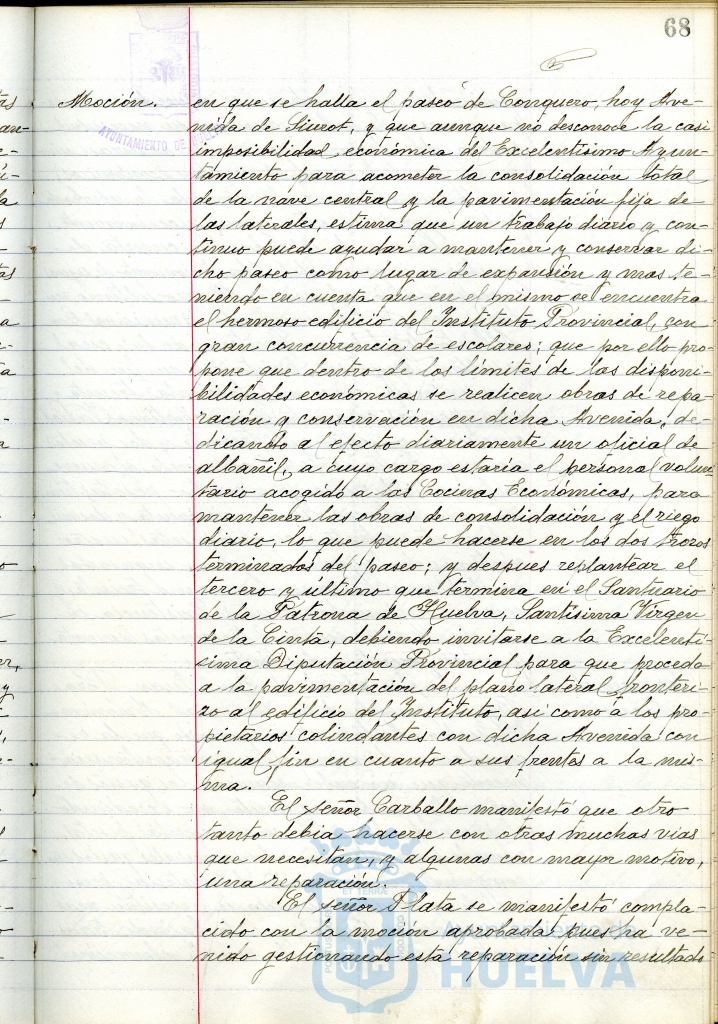 68
Moción.
en que se halla el paseo de Conquero, hoy Ave-
nida de Siurot, y que aunque no desconoce la casi
imposibilidad económica del Excelentísimo Ayun-
tamiento para acometer la consolidación total
de la nave central y la pavimentación fija de
las laterales, estima que un trabajo diario y con-
tinuo puede ayudar a mantener y conservar di-
cho paseo como lugar de expansión y mas te-
niendo en cuenta que en el mismo se encuentra
el hermoso edificio del Instituto Provincial, con
gran concurrencia de escolares; que por ello pro-
pone que dentro de los límites de las disponi-
bilidades económicas se realicen obras de repa-
ración y conservación en dicha Avenida, de-
dicando al efecto diariamente un oficial de
albañil, a cuyo cargo estaría el personal volun-
tario acogido a las Cocinas Económicas, para
mantener las obras de consolidación y el riego
diario, lo que puede hacerse en los dos trozos
terminados del paseo; y despues replantear el
tercero y último que termina en el Santuario
de la Patrona de Huelva, Santísima Virgen
de la Cinta, debiendo invitarse a la Excelentí-
sima Diputación Provincial para que proceda
a la pavimentación del plano lateral fronteri-
zo al edificio del Instituto, así como a los pro-
pietarios colindantes con dicha Avenida con
igual fin en cuanto a sus frentes a la mis-
ma.
El señor Carballo manifestó que otro
tanto debia hacerse con otras muchas vias
que necesitan, y algunas con mayor motivo,
una reparación.
El señor Plata se manifestó compla-
cido con la moción aprobada pues ha ve-
nido gestionando esta reparación sin resultado
AYUNTAMIENTO DE
HUELVA